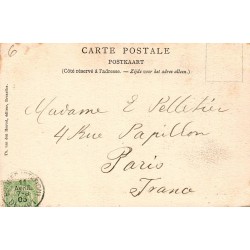 6
CARTE POSTALE
POSTKAART
(Côté réservé à l'adresse. — Zijde voor het adres alleen.)
Madame E Pelletier
4 Rue Papillon
Paris
France
11
7-8
05